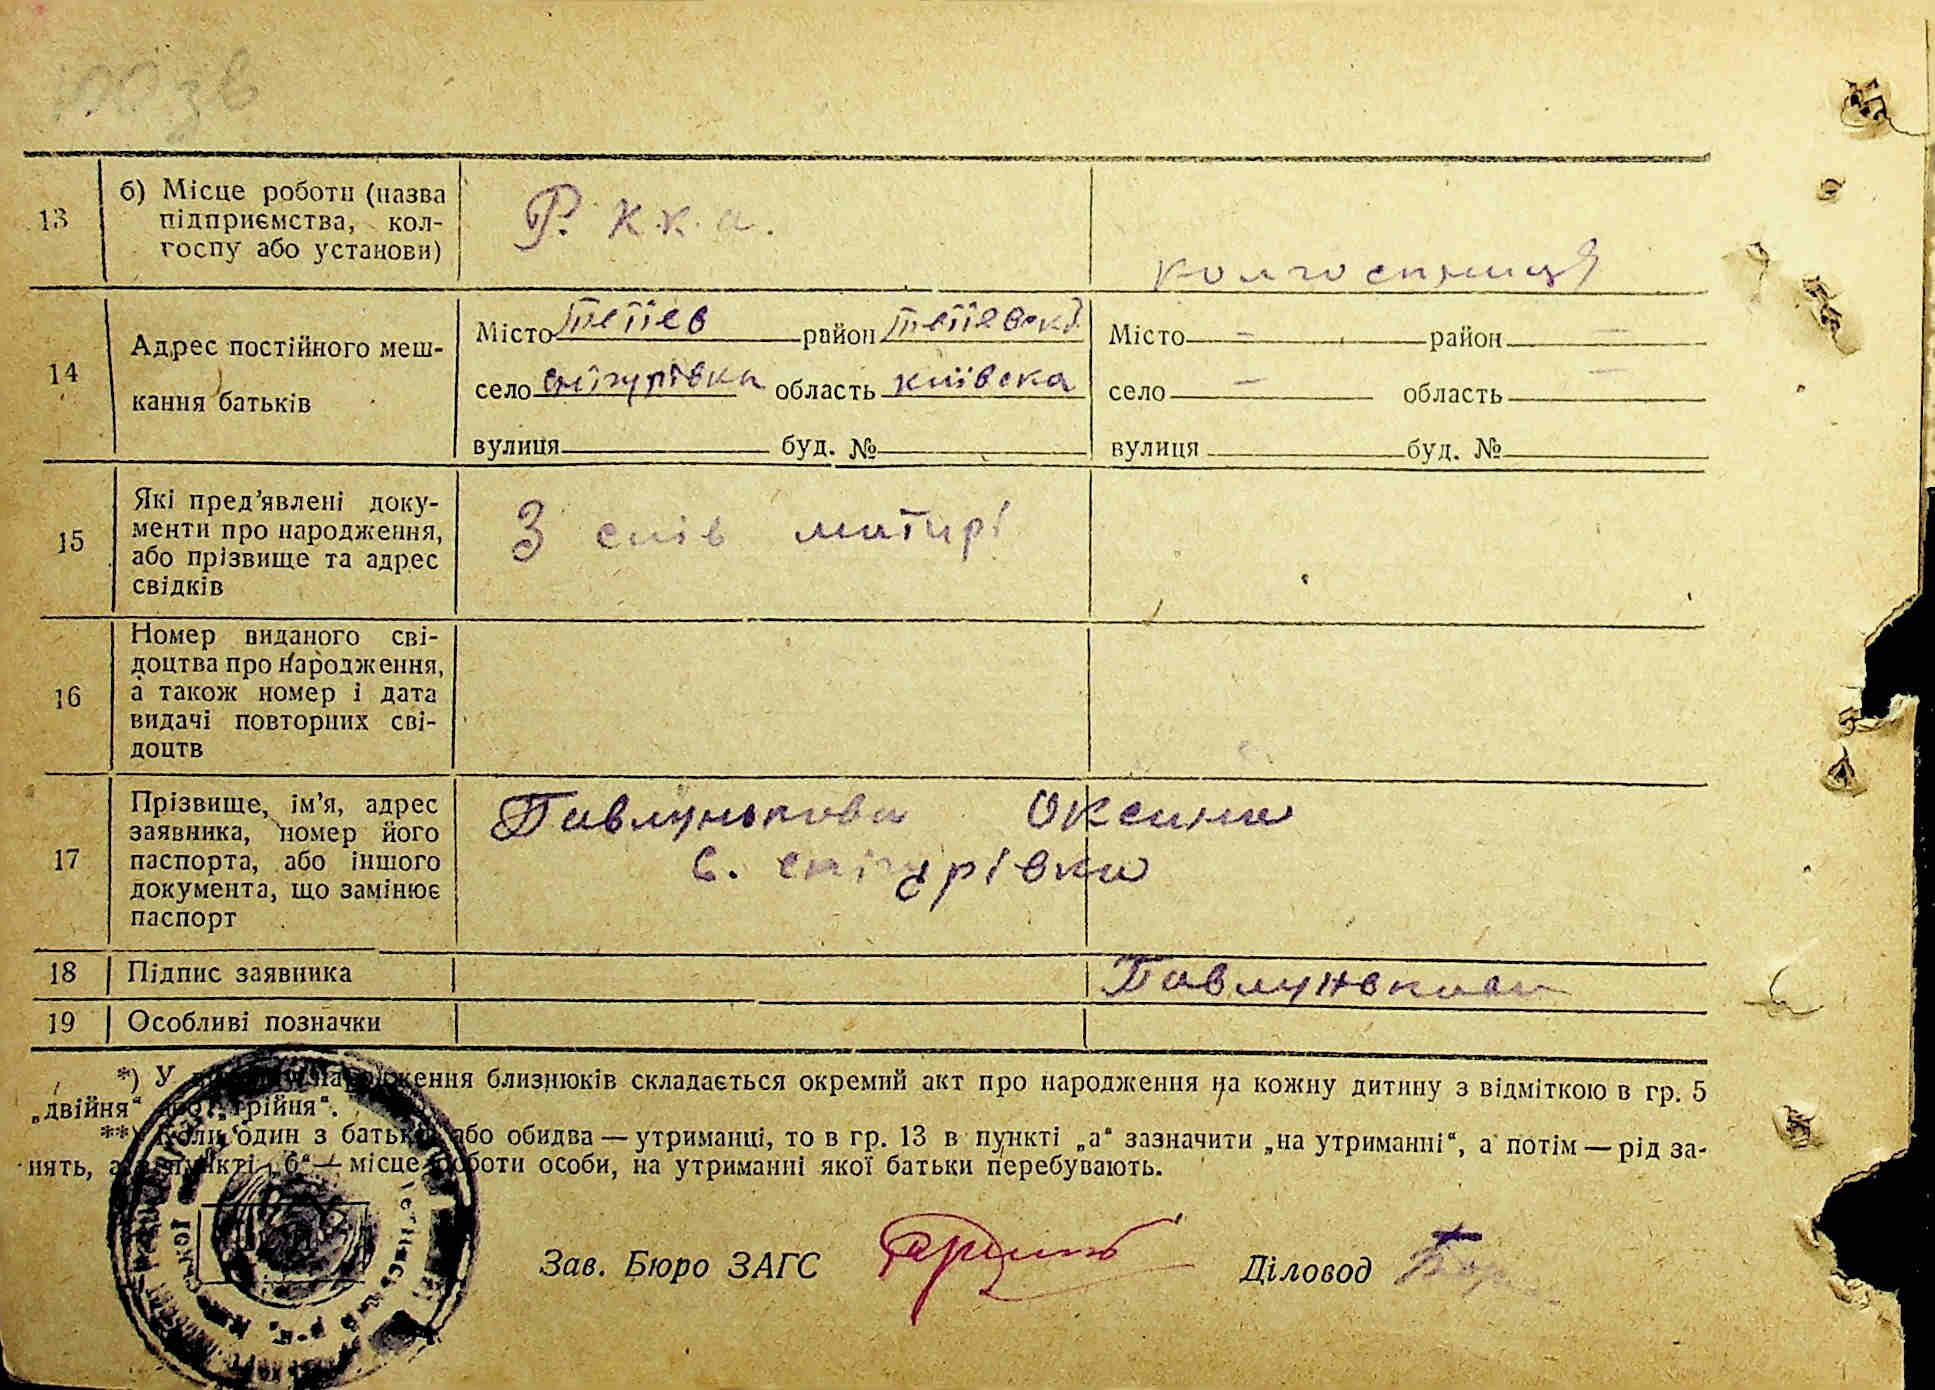 13 б) Місце роботи (назва
підприємства, кол-
госпу або установи)
Р. к.к.а.
колгоспниця
14 Адрес постійного меш-
кання батьків
Місто Тетіев район Тетіевськ.
село снігурівка область київска
вулиця буд. №
Місто — район —
село — область —
вулиця буд. №
15 Які пред’явлені доку-
менти про народження,
або прізвище та адрес
свідків
З слів матирі
16 Номер виданого сві-
доцтва про народження,
а також номер і дата
видачі повторних сві-
доцтв
17 Прізвище, ім’я, адрес
заявника, номер його
паспорта, або іншого
документа, що замінює
паспорт
Павлунькова Оксана
с. снігурівка
18 Підпис заявника Павлунькова
19 Особливі позначки
*) У народження близнюків складається окремий акт про народження на кожну дитину з відміткою в гр. 5
„двійня“ трійня“.
**) Коли один з батьків або обидва — утриманці, то в гр. 13 в пункті „а“ зазначити „на утриманні“, а потім — рід за-
нять, а в пункті „б“ — місце роботи особи, на утриманні якої батьки перебувають.
Зав. Бюро ЗАГС
Діловод